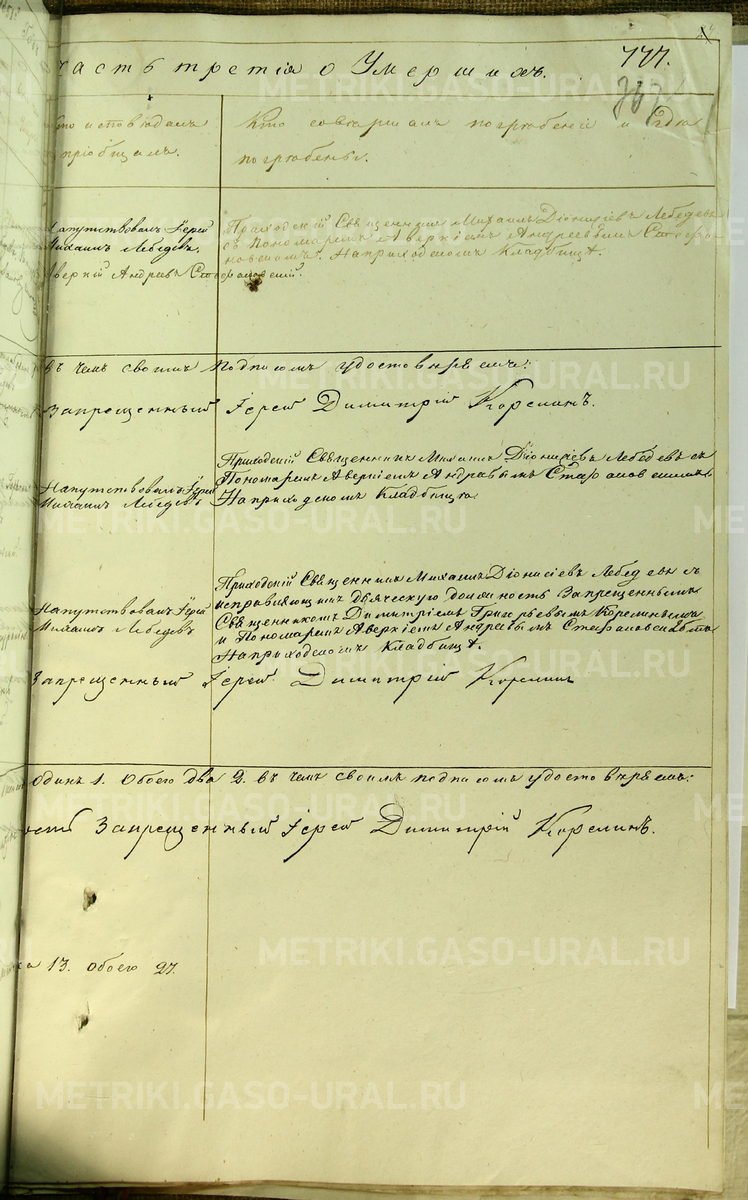 Часть третія о Умершихъ.
777.
Кто исповѣдалъ
и пріобщалъ.
Кто совершалъ погребеніе и гдѣ
погребены.
Напутствовалъ Іерей
Михаилъ Лебедевъ.
Аверкій Андреевъ Стефановскій.
Приходскій Священникъ Михаилъ Діонисіевъ Лебедевъ
съ Пономаремъ Аверкіемъ Андреевымъ Стефа-
новскимъ. На приходскомъ Кладбищѣ.
въ чемъ своимъ подписомъ удостовѣряемъ:
Запрещенный Іерей Димитрій Корелинъ.
Напутствовалъ Іерей
Михаилъ Лебедевъ
Приходскій Священникъ Михаилъ Діонисіевъ Лебедевъ съ
Пономаремъ Аверкіемъ Андреевымъ Стефановскимъ
На приходскомъ Кладбищѣ
Напутствовалъ Іерей
Михаилъ Лебедевъ
Приходскій Священникъ Михаилъ Діонисіевъ Лебедевъ съ
исправляющимъ дьяческую должность Запрещеннымъ
Священникомъ Димитріемъ Григорьевымъ Корелинымъ
и Пономаремъ Аверкіемъ Андреевымъ Стефановскимъ
На приходскомъ Кладбищѣ.
Запрещенный Іерей Димитрій Корелинъ
одинъ 1. Обоего два 2. въ чемъ своимъ подписомъ удостовѣряемъ:
Запрещенный Іерей Димитрій Корелинъ.
13. обоего 27.
METRIKI.GASO-URAL.RU
METRIKI.GASO-URAL.RU
METRIKI.GASO-URAL.RU
METRIKI.GASO-URAL.RU
METRIKI.GASO-URAL.RU
METRIKI.GASO-URAL.RU
METRIKI.GASO-URAL.RU
METRIKI.GASO-URAL.RU